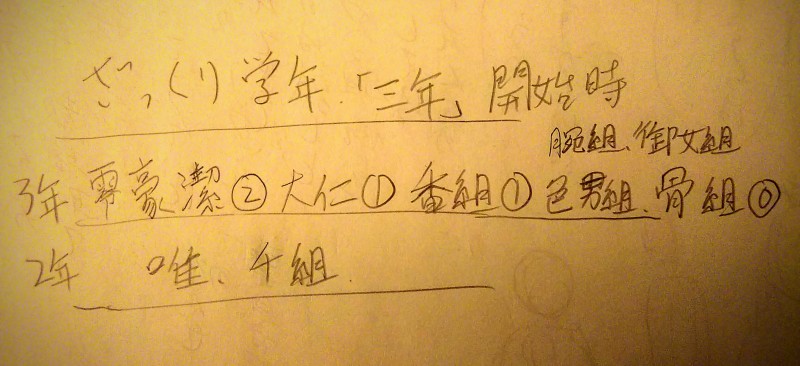 ざっくり学年.「三年」開始時
腕組、御女組
3年 零豪潔② 大仁① 番組① 色男組、骨組⓪
2年 唯、千組